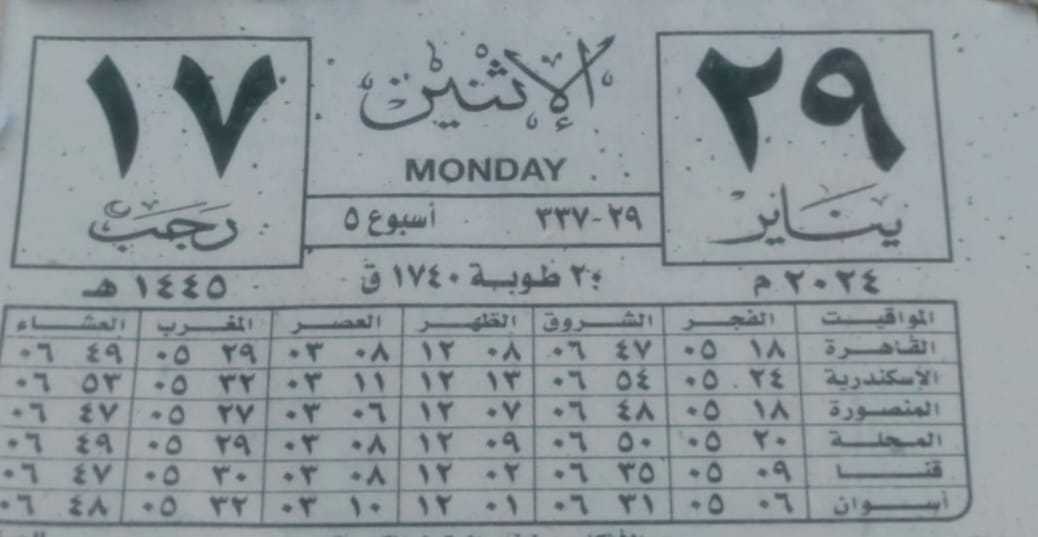 ٢٩
يناير
٢٠٢٤ م
الإثنين
MONDAY
٢٩-٣٣٧ أسبوع ٥
٢٠ طوبة ١٧٤٠ ق
١٧
رجب
١٤٤٥ هـ
المواقيت الفجر الشروق الظهر العصر المغرب العشاء
القاهرة ١٨ ٠٥ ٤٧ ٠٦ ٠٨ ١٢ ٠٨ ٠٣ ٢٩ ٠٥ ٤٩ ٠٦
الأسكندرية ٢٤ ٠٥ ٥٤ ٠٦ ١٣ ١٢ ١١ ٠٣ ٣٢ ٠٥ ٥٣ ٠٦
المنصورة ١٨ ٠٥ ٤٨ ٠٦ ٠٧ ١٢ ٠٦ ٠٣ ٢٧ ٠٥ ٤٧ ٠٦
المحلة ٢٠ ٠٥ ٥٠ ٠٦ ٠٩ ١٢ ٠٨ ٠٣ ٢٩ ٠٥ ٤٩ ٠٦
قنا ٠٩ ٠٥ ٣٥ ٠٦ ٠٢ ١٢ ٠٨ ٠٣ ٣٠ ٠٥ ٤٧ ٠٦
أسوان ٠٦ ٠٥ ٣١ ٠٦ ٠١ ١٢ ١٠ ٠٣ ٣٢ ٠٥ ٤٨ ٠٦